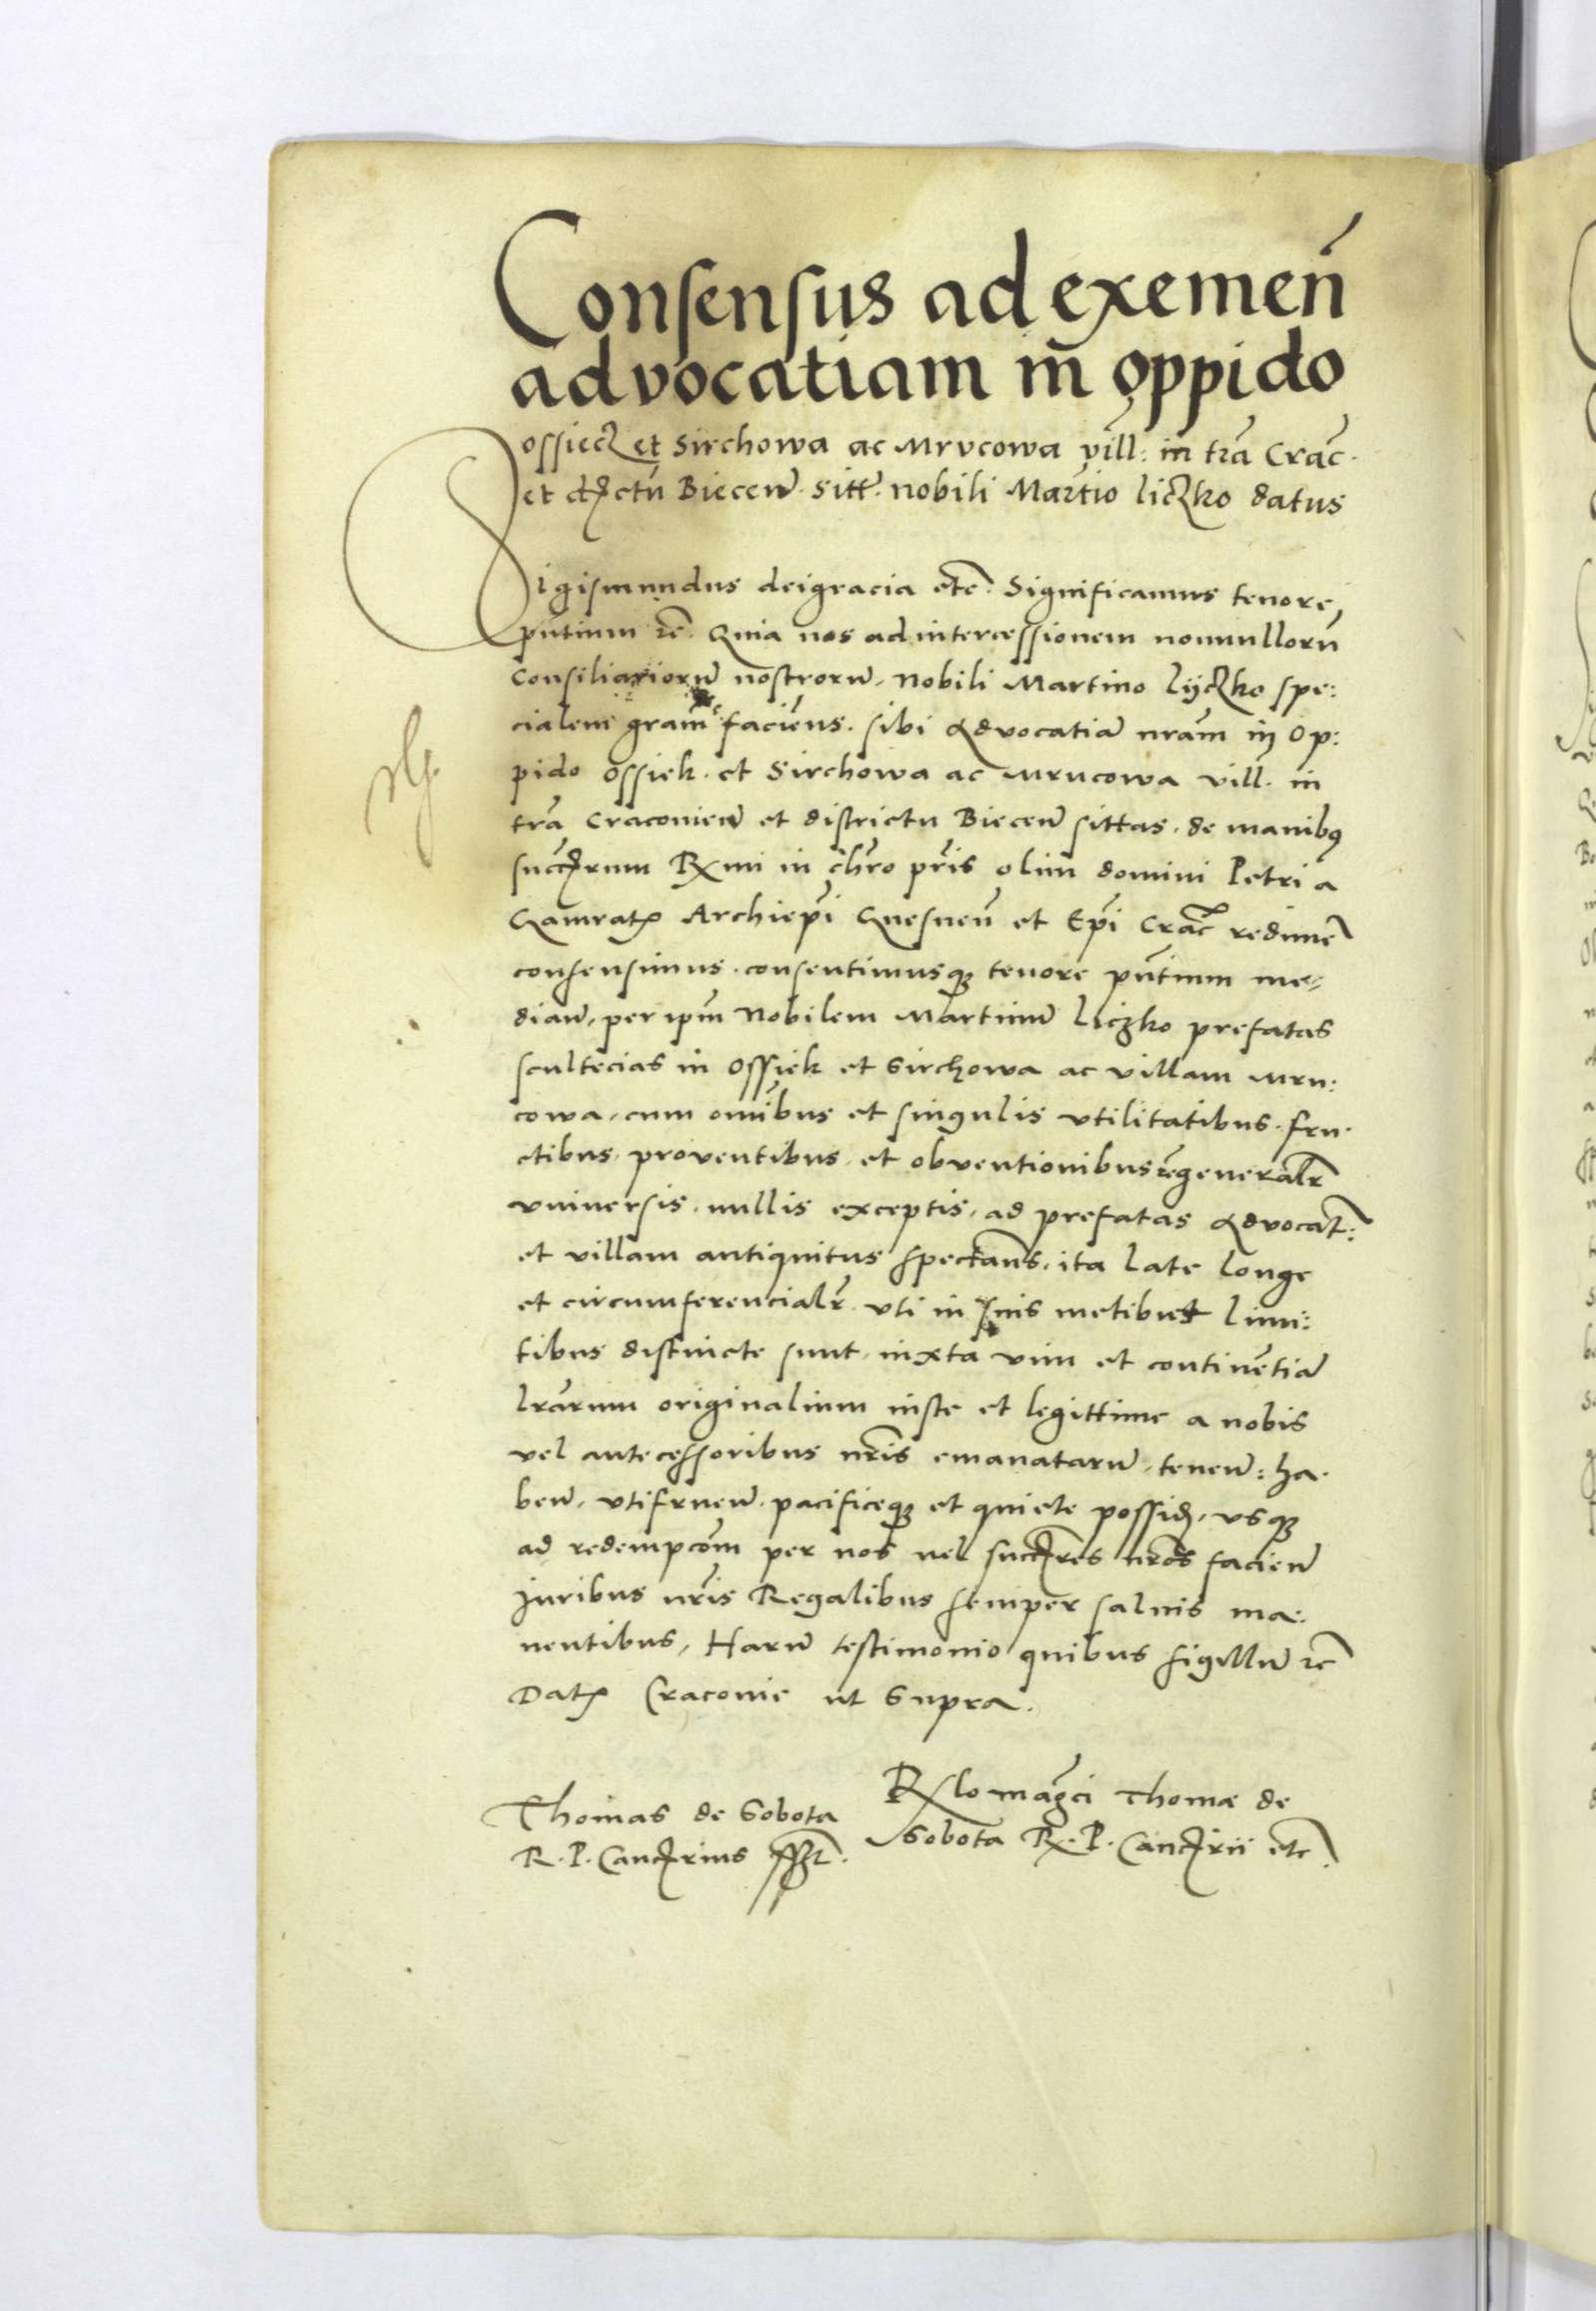 Consensus ad exemen̄
advocatiam in̄ oppido
ossieck et Sirchowa ac Mrucowa vill: in tr̃a Crac̃.
et dr̃ctu Biecen̄. sitt. nobili Martio liczko datus
Sigismundus dei gracia etc̃. Significamus tenore
pn̄tium zc̃. Quia nos ad intercessionem nonnullorū
Consiliariorū nostrorū, nobili Martino lÿczko spe:
cialem gram̃ faciens. sibi Advocatiā nr̃am in Op:
pido Ossiek. et Sirchowa ac Mrucowa vill. in
tr̃a Craconien̄ et districtu Biecen̄ sittas. de manibꝰ
succr̃um Rx̃mi in chr̃o pr̃is olim domini Petri a
Gamratꝭ Archiepĩ Gnesnen̄ et Epĩ Crac̃ redimē
consensimus. consentimusqꝫ tenore pn̄tium me=
dian̄, per ipm̃ Nobilem Martinū Liczko prefatas
scultecias in Ossiek et Sirchowa ac villam Mru:
cowa, cum omĩbus et singulis utilitatibus. fru.
ctibus, proventibus, et obventionibus zc̃ generalr̃
universis, nullis exceptis, ad prefatas Advocat̃:
et villam antiquitus spectan̄s, ita late longe
et circumferencialr̃. uti in suis metibus et limi:
tibus distincte sunt, iuxta vim et continẽtiā
lr̃arum originalium iuste et legittime a nobis
vel antecessoribus nr̃is emanatarū, tenen̄: ha.
ben̄, utifruen̄. pacificeqꝫ et quiete possid̃, usqꝫ
ad redempcōm per nos vel succr̃es nr̃os facien̄
Juribus nr̃is Regalibus semper salvis ma:
nentibus, Harū testimonio quibus sigillū zc̃
Datꝭ Craconie ut supra.
Thomas de Sobota
R. P. Cancr̃ius sszt.
Rx̃lo mag̃ci Thomæ de
Sobota Rx̃. P. Cancr̃ii etc̃.